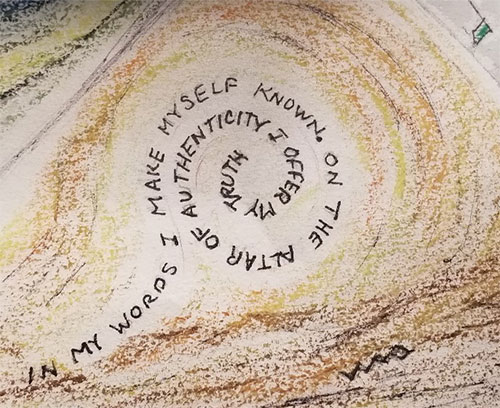 IN MY WORDS I MAKE MYSELF KNOWN. ON THE ALTAR OF AUTHENTICITY I OFFER MY TRUTH